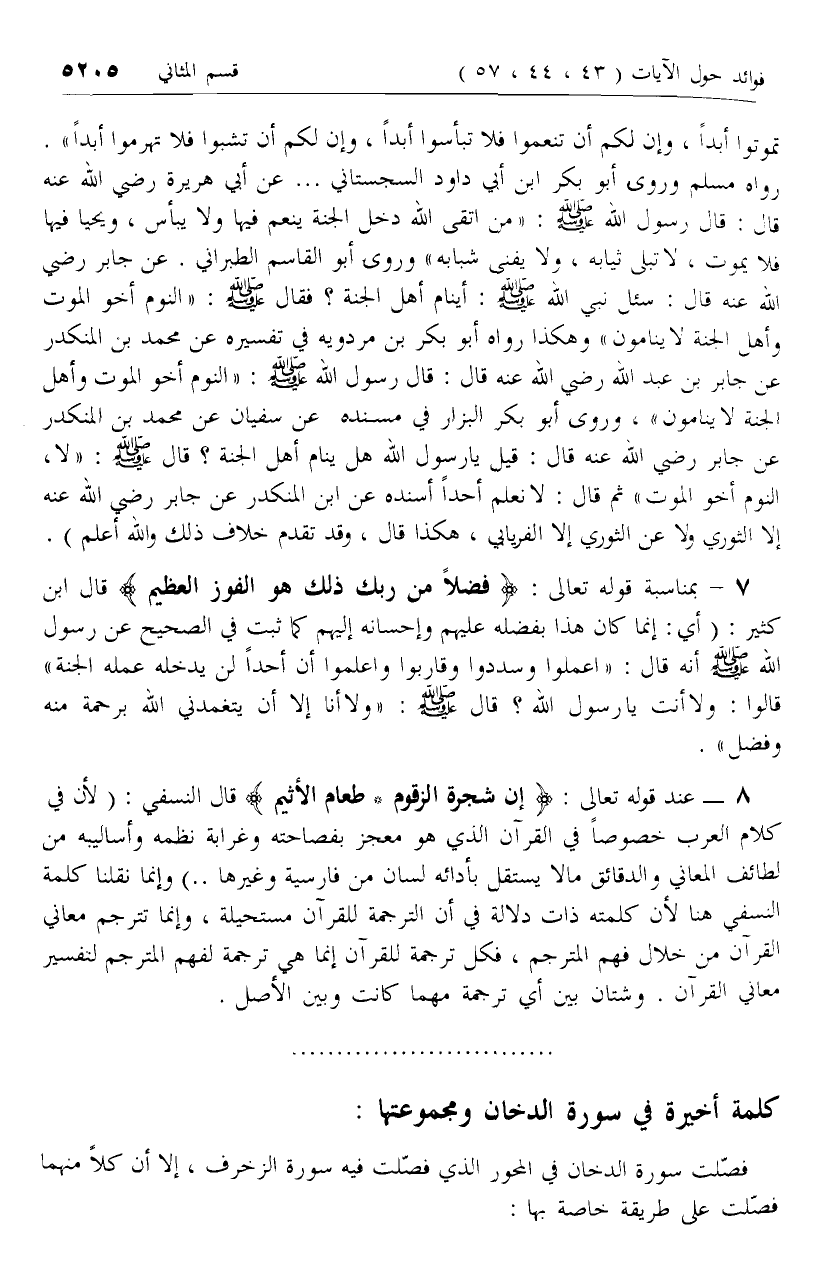 فوائد حول الآيات ( ٤٣ ، ٤٤ ، ٥٧ ) قسم المثاني ٥٢٠٥
تموتوا أبداً ، وإن لكم أن تنعموا فلا تبأسوا أبداً ، وإن لكم أن تشبوا فلا تهرموا أبداً» .
رواه مسلم وروى أبو بكر ابن أبي داود السجستاني ... عن أبي هريرة رضي الله عنه
قال : قال رسول الله ﷺ : «من اتقى الله دخل الجنة ينعم فيها ولا يبأس ، ويحيا فيها
فلا يموت ، لا تبلى ثيابه ، ولا يفنى شبابه» وروى أبو القاسم الطبراني . عن جابر رضي
الله عنه قال : سئل نبي الله ﷺ : أينام أهل الجنة ؟ فقال ﷺ : «النوم أخو الموت
وأهل الجنة لا ينامون» وهكذا رواه أبو بكر بن مردويه في تفسيره عن محمد بن المنكدر
عن جابر بن عبد الله رضي الله عنه قال : قال رسول الله ﷺ : «النوم أخو الموت وأهل
الجنة لا ينامون» ، وروى أبو بكر البزار في مسنده عن سفيان عن محمد بن المنكدر
عن جابر رضي الله عنه قال : قيل يارسول الله هل ينام أهل الجنة ؟ قال ﷺ : «لا،
النوم أخو الموت» ثم قال : لا نعلم أحداً أسنده عن ابن المنكدر عن جابر رضي الله عنه
إلا الثوري ولا عن الثوري إلا الفريابي ، هكذا قال ، وقد تقدم خلاف ذلك والله أعلم ) .
٧ – بمناسبة قوله تعالى : ﴿ فضلاً من ربك ذلك هو الفوز العظيم ﴾ قال ابن
كثير : ( أي : إنما كان هذا بفضله عليهم وإحسانه إليهم كما ثبت في الصحيح عن رسول
الله ﷺ أنه قال : «اعملوا وسددوا وقاربوا واعلموا أن أحداً لن يدخله عمله الجنة»
قالوا : ولا أنت يارسول الله ؟ قال ﷺ : «ولا أنا إلا أن يتغمدني الله برحمة منه
وفضل» .
٨ ــ عند قوله تعالى : ﴿ إن شجرة الزقوم * طعام الأثيم ﴾ قال النسفي : ( لأن في
كلام العرب خصوصاً في القرآن الذي هو معجز بفصاحته وغرابة نظمه وأساليبه من
لطائف المعاني والدقائق مالا يستقل بأدائه لسان من فارسية وغيرها ..) وإنما نقلنا كلمة
النسفي هنا لأن كلمته ذات دلالة في أن الترجمة للقرآن مستحيلة ، وإنما تترجم معاني
القرآن من خلال فهم المترجم ، فكل ترجمة للقرآن إنما هي ترجمة لفهم المترجم لتفسير
معاني القرآن . وشتان بين أي ترجمة مهما كانت وبين الأصل .
.............................
كلمة أخيرة في سورة الدخان ومجموعتها :
فصّلت سورة الدخان في المحور الذي فصّلت فيه سورة الزخرف ، إلا أن كلاً منهما
فصّلت على طريقة خاصة بها :